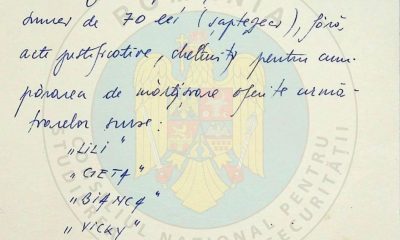 sumei de 70 lei (șaptezeci), fără
acte justificative, cheltuită pentru cum-
părarea de mărțișoare oferite urmă-
toarelor surse:
"LILI"
"GETA"
"BIANCA"
"VICKY"
ROMÂNIA
CONSILIUL NAȚIONAL PENTRU
STUDIEREA
SECURITĂȚII